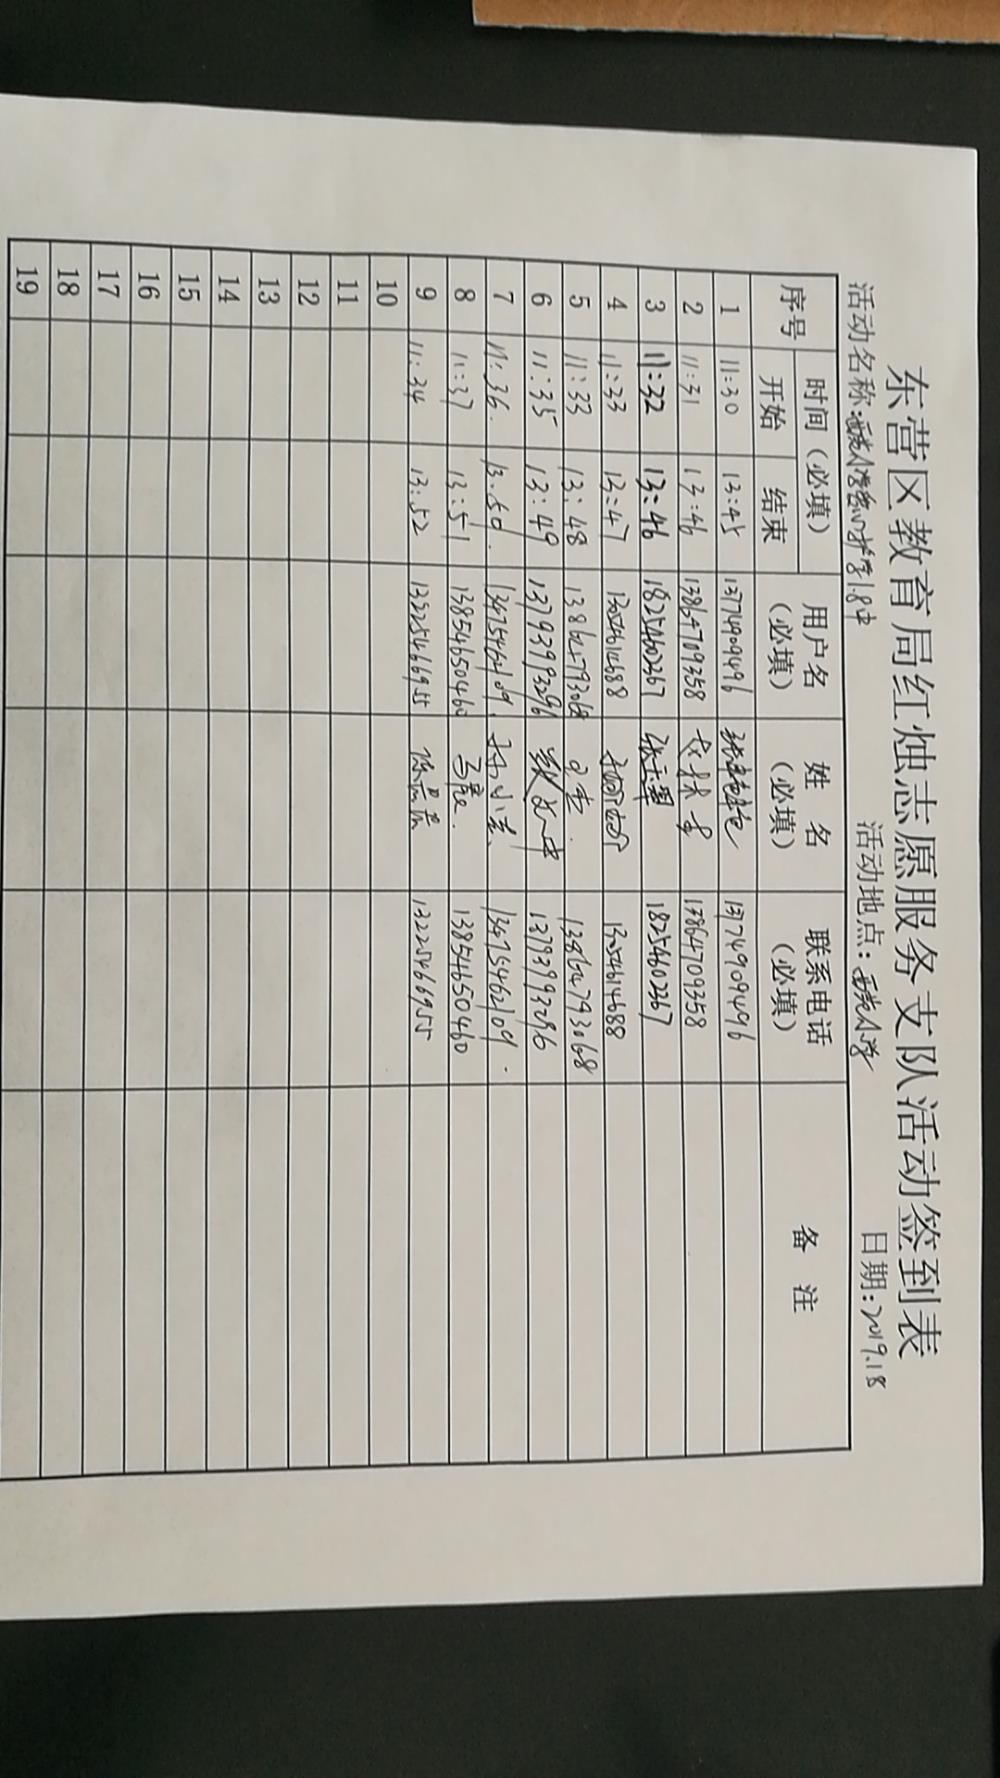 东营区教育局红烛志愿服务支队活动签到表
活动名称: 活动地点: 小学 日期:2019.1.8
序号 时间(必填) 用户名(必填) 姓名(必填) 联系电话(必填) 备注
开始 结束
1 11:30 13:45 13774909496 13774909496
2 11:31 13:46 13864709358 13864709358
3 11:32 13:46 18254602367 18254602367
4 11:33 13:47 13054614688 13054614688
5 11:33 13:48 13864793068 13864793068
6 11:35 13:49 13793993296 13793993296
7 11:36. 13:50. 13475462109. 孙小 13475462109.
8 11:37 13:51 13854650460 马 13854650460
9 11:34 13:52 13225466955 陈 13225466955
10
11
12
13
14
15
16
17
18
19